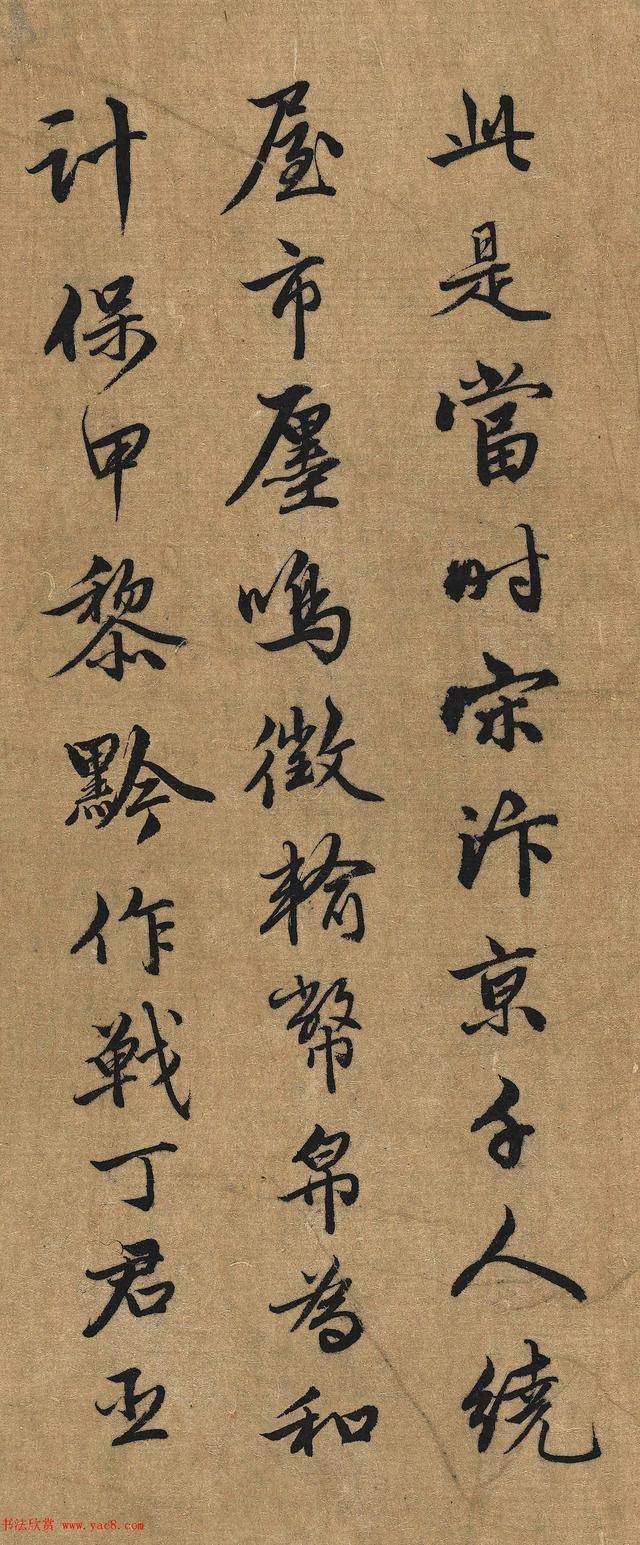 此是當时宋汴京千人繞
屋市廛鳴徵輸幣帛為和
計保甲黎黔作戰丁君臣
书法欣赏 www.yac8.com